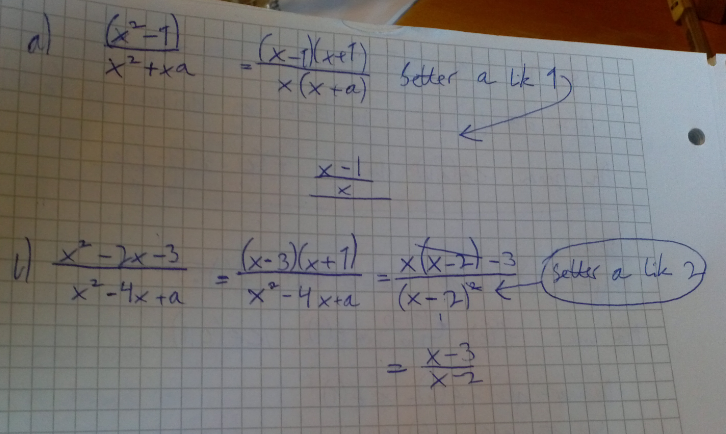 a) (x²-1) / x²+xa = (x-1)(x+1) / x(x+a) Setter a lik 1
x-1 / x
b) x²-2x-3 / x²-4x+a = (x-3)(x+1) / x²-4x+a = x(x-2)-3 / (x-2)² setter a lik 2
= x-3 / x-2